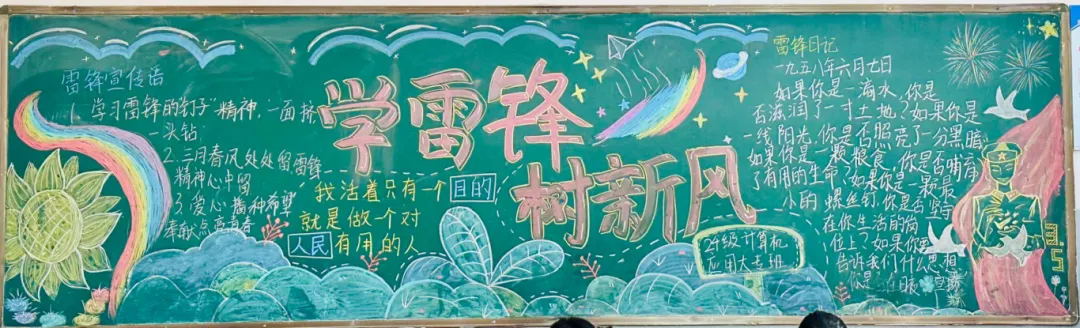 雷锋宣传语
1. 学习雷锋的"钉子"精神,一面挤
一头钻
2. 三月春风处处留雷锋
精神心中留
3. 爱心播种希望
奉献点亮青春
学雷锋
树新风
我活着只有一个目的,
就是做一个对
人民有用的人
24级计算机
应用大专班
雷锋日记
一九五八年六月七日
如果你是一滴水,你是
否滋润了一寸土地?如果你是
一线阳光,你是否照亮了一分黑暗
如果你是一颗粮食,你是否哺育
了有用的生命?如果你是一颗最
小的螺丝钉,你是否坚守
在你生活的岗
位上?如果你要
告诉我们什么思想
你是
3.5